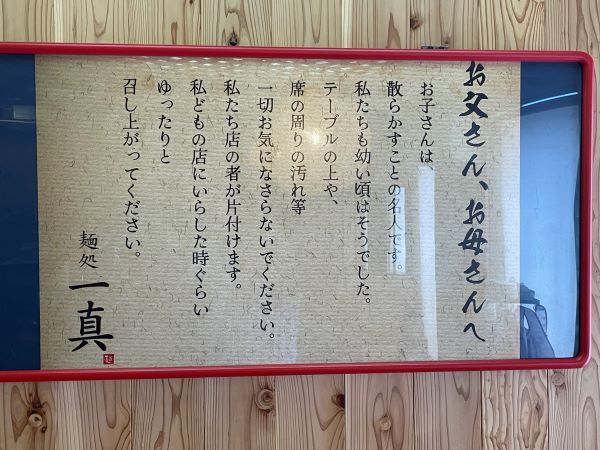 お父さん、お母さんへ
お子さんは、
散らかすことの名人です。
私たちも幼い頃はそうでした。
テーブルの上や、
席の周りの汚れ等
一切お気になさらないでください。
私たち店の者が片付けます。
私どもの店にいらした時ぐらい
ゆったりと
召し上がってください。
麺処 一真